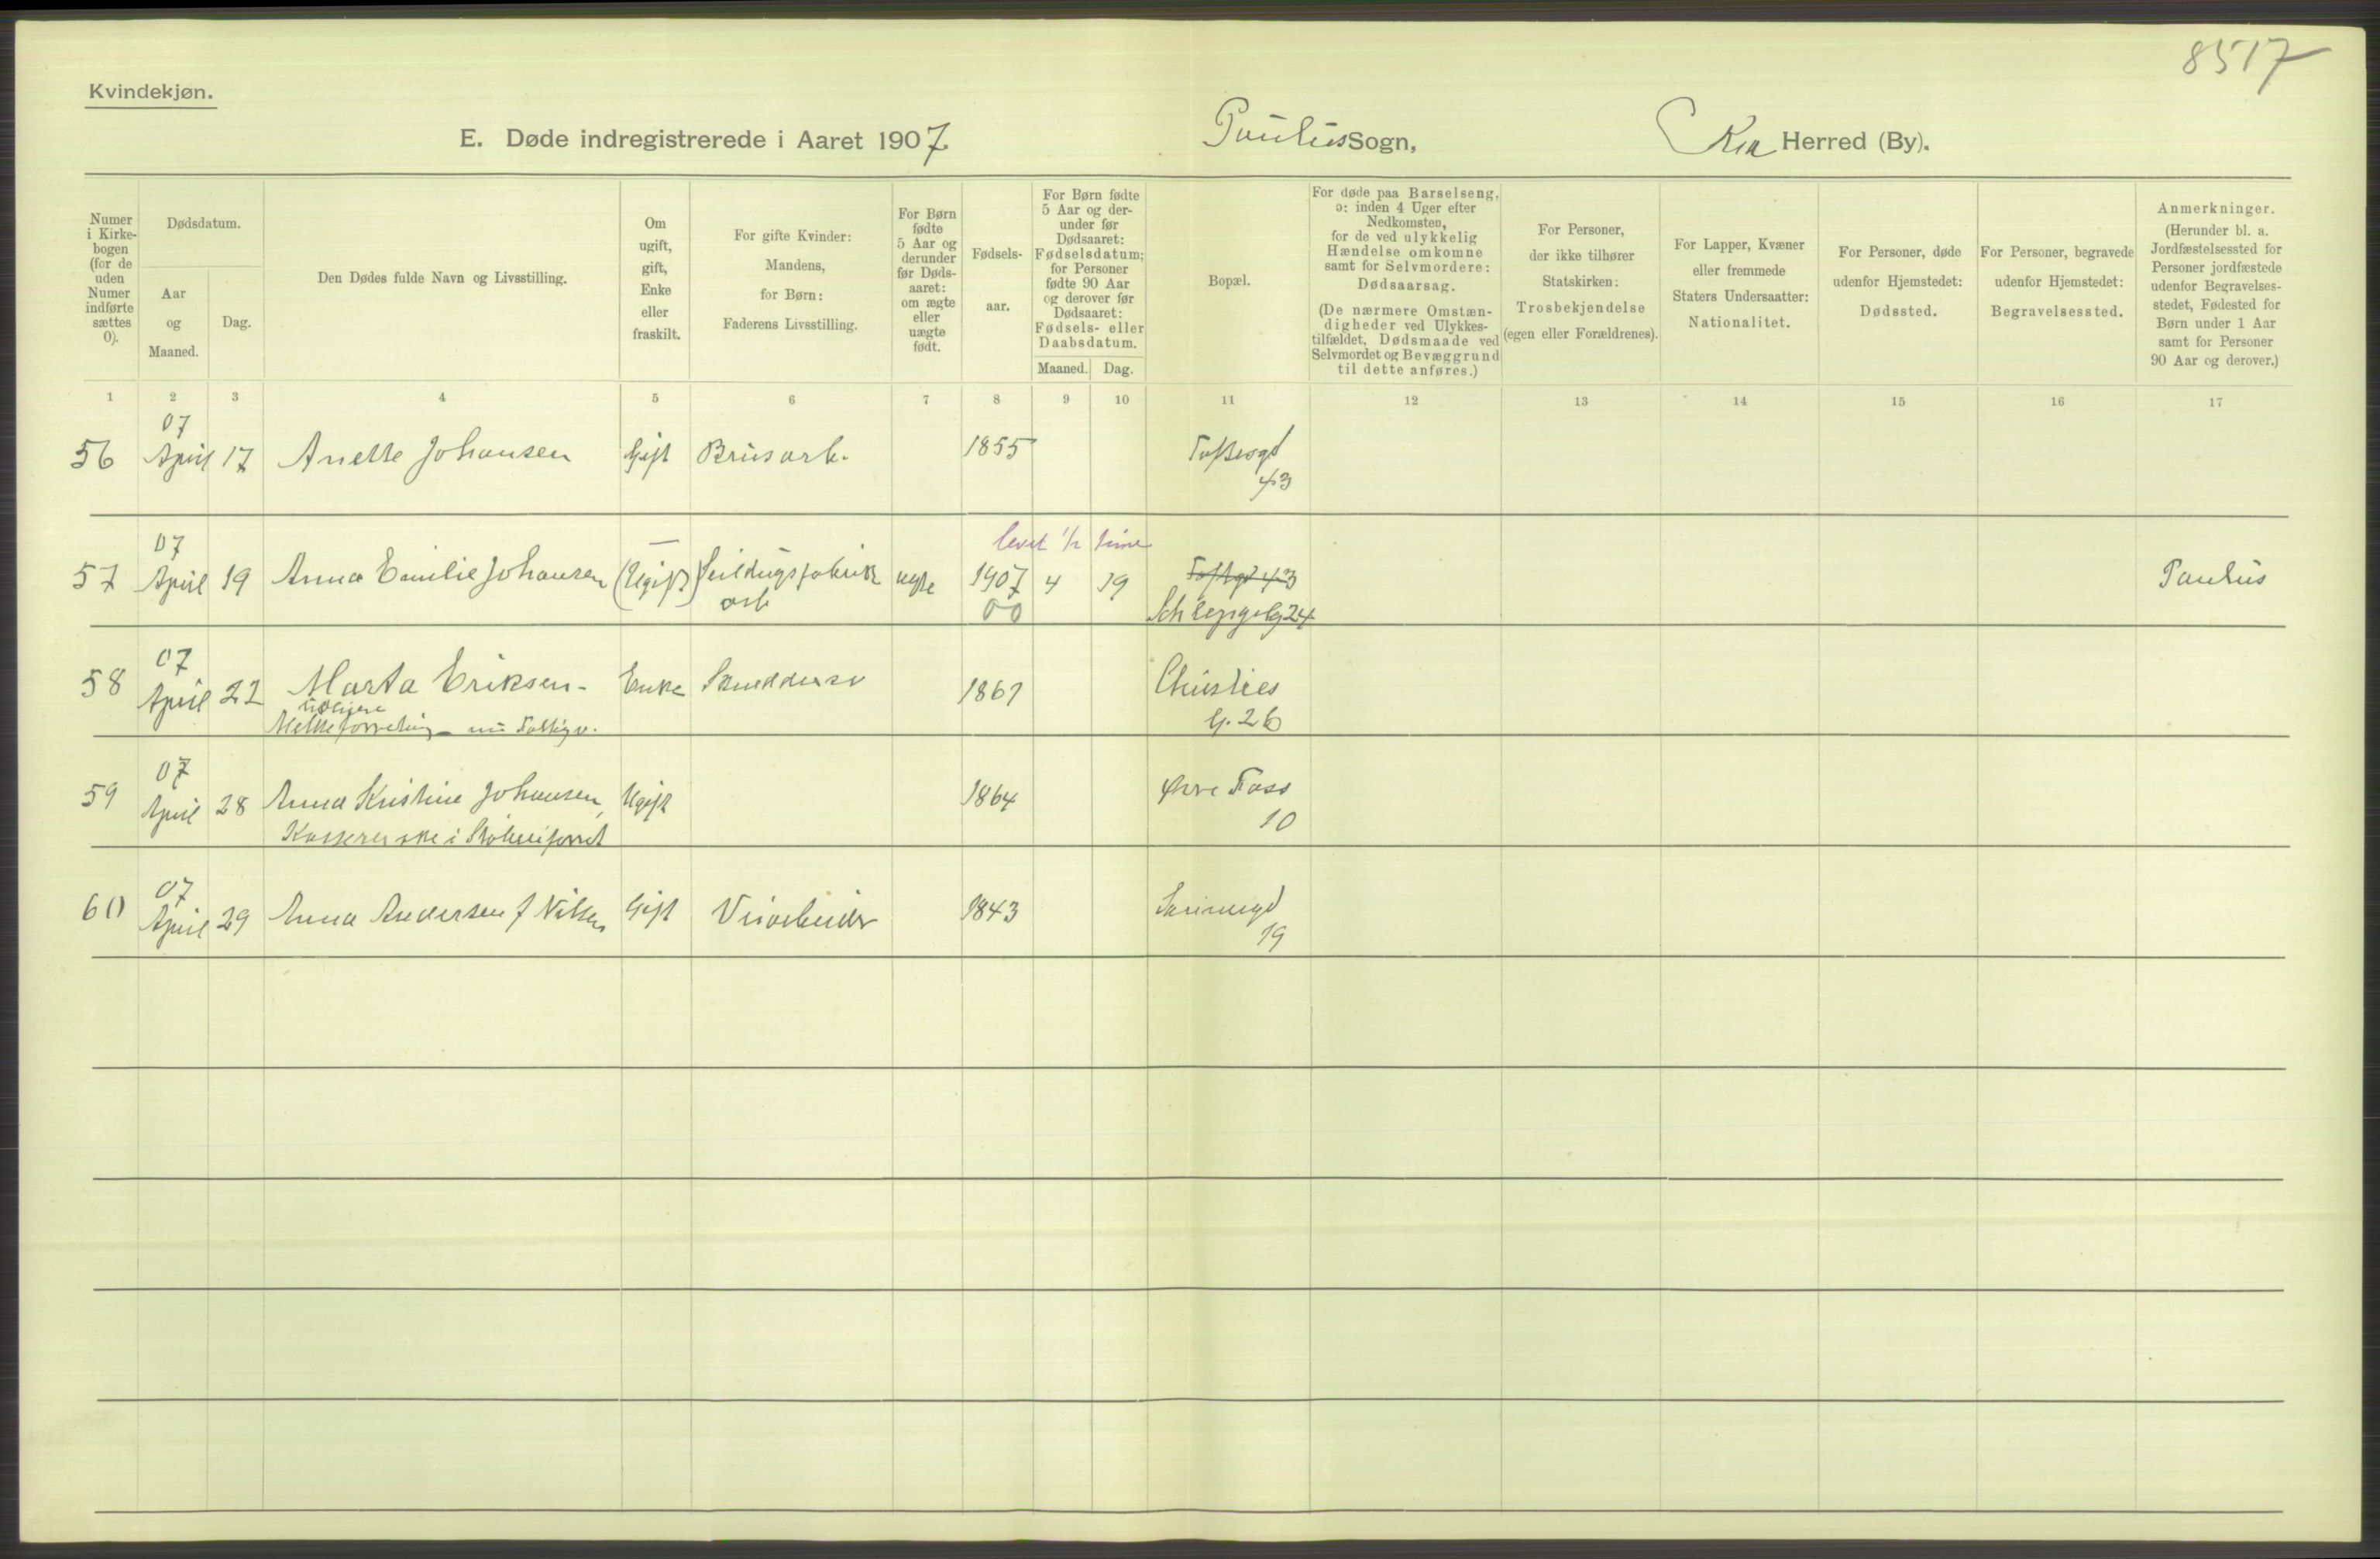 8517
Kvindekjøn.
E. Døde indregistrerede i Aaret 1907. Paulus Sogn, Kra Herred (By).
Numer i Kirkebogen (for de uden Numer indførte sættes 0).
Dødsdatum.
Aar og Maaned.
Dag.
Den Dødes fulde Navn og Livsstilling.
Om ugift, gift, Enke eller fraskilt.
For gifte Kvinder: Mandens, for Børn: Faderens Livsstilling.
For Børn fødte 5 Aar og derunder før Dødsaaret: om ægte eller uægte født.
Fødselsaar.
For Børn fødte 5 Aar og derunder før Dødsaaret: Fødselsdatum; for Personer fødte 90 Aar og derover før Dødsaaret: Fødsels- eller Daabsdatum.
Maaned. Dag.
Bopæl.
For døde paa Barselseng, ɔ: inden 4 Uger efter Nedkomsten, for de ved ulykkelig Hændelse omkomne samt for Selvmordere: Dødsaarsag.
(De nærmere Omstændigheder ved Ulykkestilfældet, Dødsmaade ved Selvmordet og Bevæggrund til dette anføres.)
For Personer, der ikke tilhører Statskirken: Trosbekjendelse (egen eller Forældrenes).
For Lapper, Kvæner eller fremmede Staters Undersaatter: Nationalitet.
For Personer, døde udenfor Hjemstedet: Dødssted.
For Personer, begravede udenfor Hjemstedet: Begravelsessted.
Anmerkninger. (Herunder bl. a. Jordfæstelsessted for Personer jordfæstede udenfor Begravelsesstedet, Fødested for Børn under 1 Aar samt for Personer 90 Aar og derover.)
1 2 3 4 5 6 7 8 9 10 11 12 13 14 15 16 17
07
56 April 17 Anette Johansen Gift Brusarb. 1855 Toftesgd
43
07 levet 1/2 time
57 April 19 Anna Emilie Johansen (Ugift) Seildugsfabrik ægte 1907 4 19 Toftgd 43 Paulus
arb 00 Schleppegg 24
07
58 April 22 Marta Eriksen - Enke Skreddersv 1861 Christies
tidligere G. 26
Melkeforretning - nu
07
59 April 28 Anna Kristine Johansen, Ugift 1864 Øvre Foss
Kassererske i 10
07
60 April 29 Anna Andersen f Nilsen Gift Visarbeider 1843
19